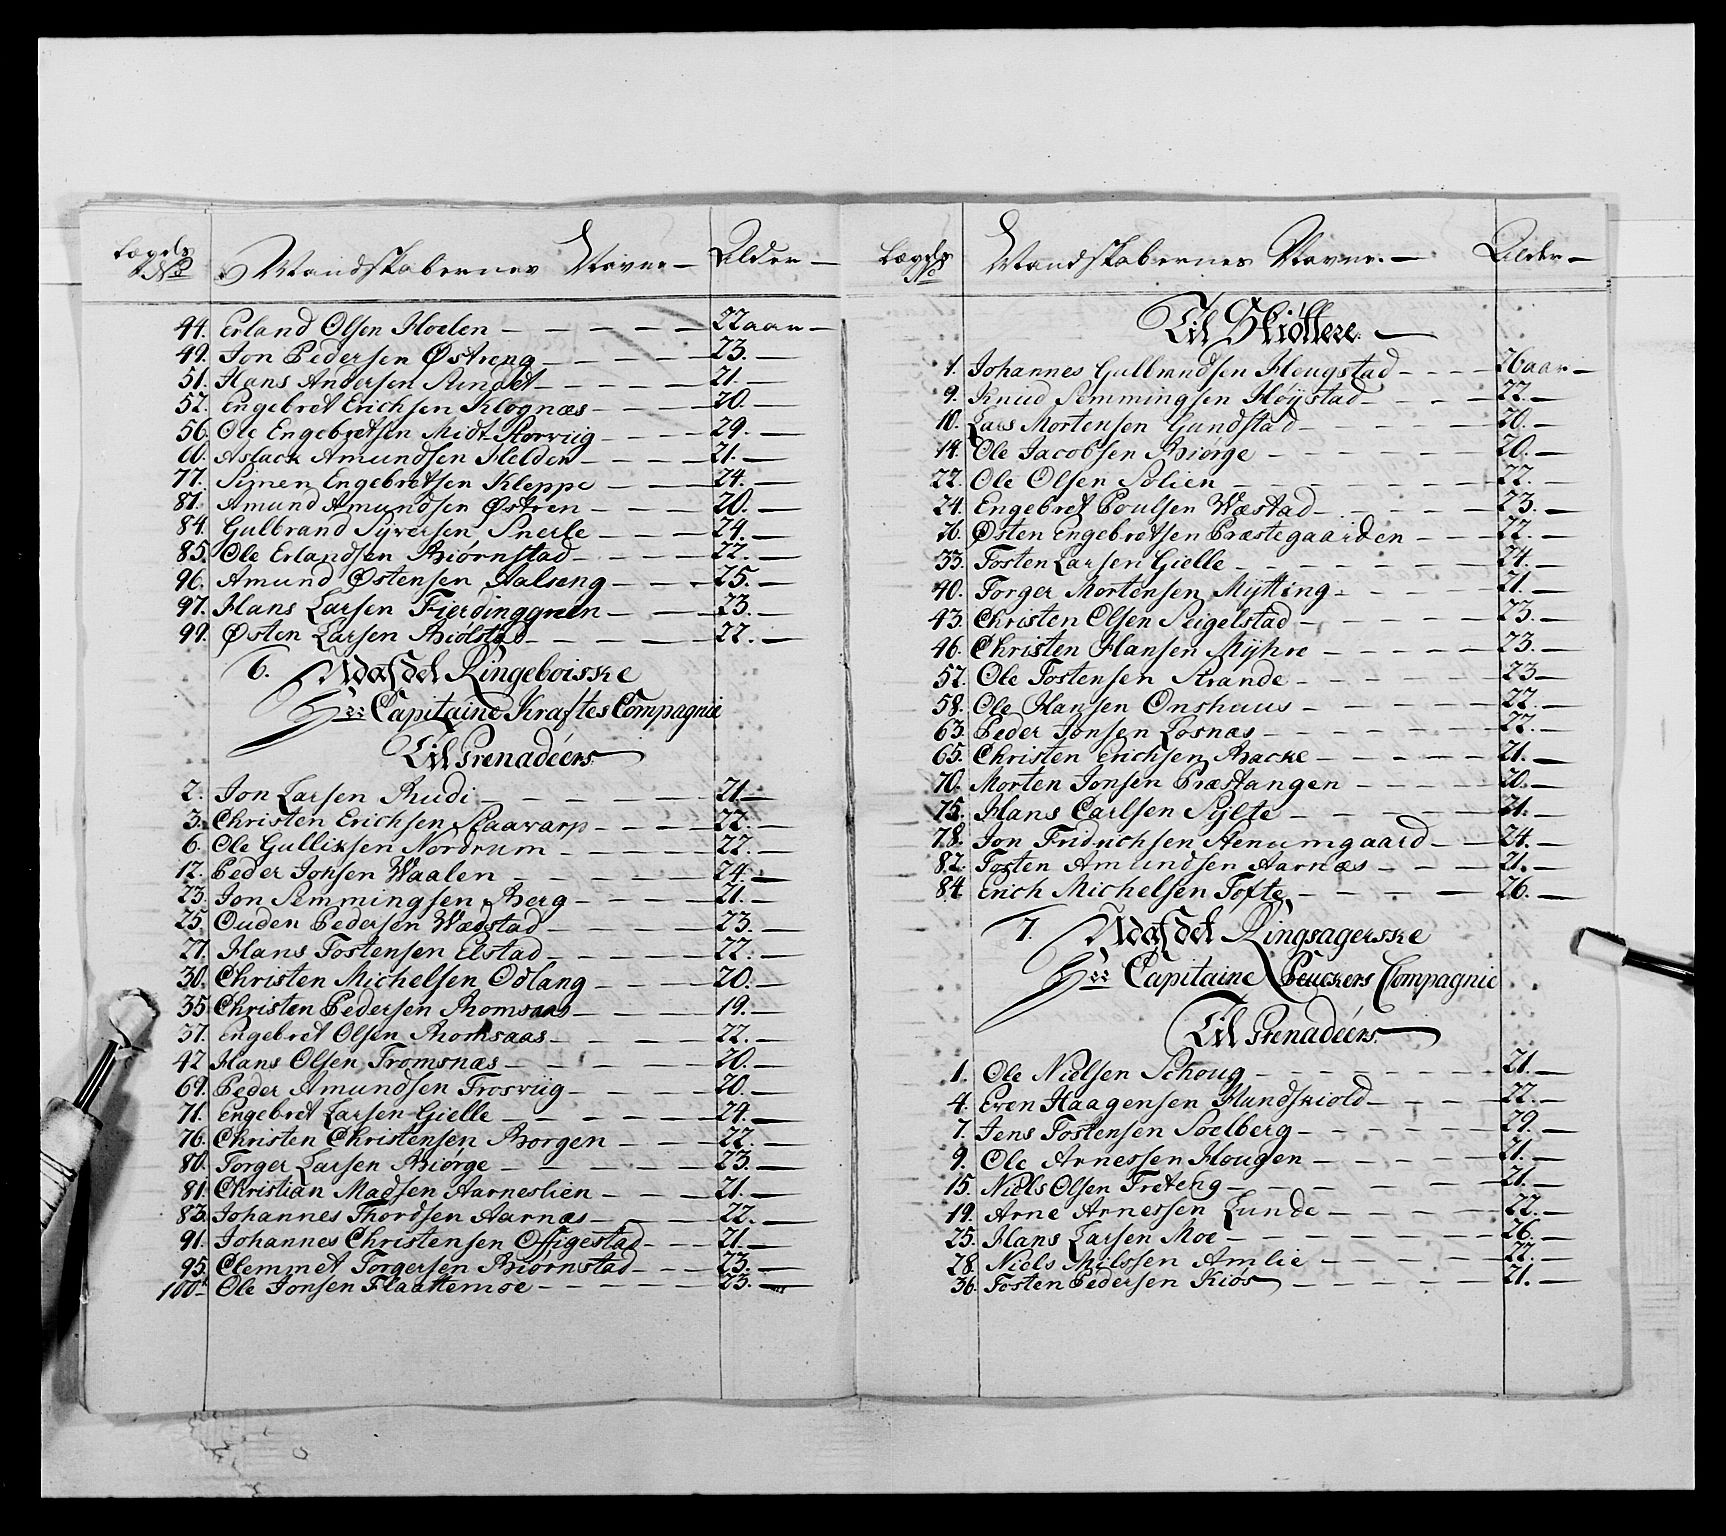 Lægds No Mandskabernes Navne Alder
44. Erland Olsen Hoelen 22 aar
49. Jon Pedersen Østreng 23.
51. Hans Andersen Sundet 21.
52. Engebret Erichsen Klognæs 20.
56. Ole Engebretsen Midt Storviig 29.
Aslack Amundsen Helden 21.
77. Simen Engebretsen Kleppe 24.
81. Amund Amundsen Østren 20.
84. Gulbrand Syversen Snerle 24.
85. Ole Erlandsen Biørnstad 22.
96. Amund Østensen Aalseng 25.
97. Hans Larsen Fierdinggreen 23.
99. Østen Larsen Biølstad 22.
6. Udaf det Ringeboiske
Hrr Capitaine Kraftes Compagnie
Til Grenadéers
2. Jon Larsen Rudi 21.
3. Christen Erichsen Staavarp 22.
6. Ole Gulliksen Nordrum 22.
12. Peder Jonsen Waalen 24.
23. Jon Semmingsen Berg 21.
25. Ouden Pedersen Wædstad 23.
27. Hans Tostensen Elstad 22.
30. Christen Michelsen Odlang 20.
35. Christen Pedersen Romsaas 19.
37. Engebret Olsen Romsaas 22.
42 Hans Olsen Tromsnæs 20.
69. Peder Amundsen Frosviig 20.
71. Engebret Larsen Gielle 24.
76. Christen Christensen Borgen 22.
80. Torger Larsen Biørge 23.
81. Christian Madsen Aarneslien 21.
83. Johannes Thordsen Aarnæs 22.
91. Johannes Christensen Offigestad 21.
95. Clemmet Torgersen Biørnstad 23.
100. Ole Jonsen Flaattemoe 23.
Lægds No Mandskabernes Navne Alder
Til Skiøttere
1. Johannes Gulbrandsen Heugstad 26 aar
9. Knud Semmingsen Høystad 22.
10. Lars Mortensen Gundstad 20.
14. Ole Jacobsen Biørge 20.
22. Ole Olsen Solien 22.
24. Engebret Poulsen Wæstad 23.
26. Østen Engebretsen Præstegaarden 22.
33. Tosten Larsen Gielle 24.
40. Torger Mortensen Mytting 21.
43. Christen Olsen Seigelstad 23.
46. Christen Hansen Myhre 23.
57. Ole Tostensen Strande 23
58. Ole Hansen Onshuus 22.
63. Peder Jonsen Losnæs 22.
65. Christen Erichsen Backe 21.
70. Morten Jonsen Præstangen 20.
75. Hans Carlsen Sylte 21.
78. Jon Fridrichsen Stenumgaard 24.
82. Tosten Amundsen Aarnæs 21.
84. Erich Michelsen Tofte 26.
7. Udaf det Ringsagerske
Hrr Capitaine Peuckers Compagnie
Til Grenadéers
1. Ole Nielsen Schoug 21.
4. Even Haagensen Hundskiold 22.
7. Jens Tostensen Soelberg 29.
9. Ole Arnessen Hougen 21.
15. Niels Olsen Freteng 21.
19. Arne Arnessen Lunde 22.
25. Hans Larsen Moe 26.
28. Niels Nilssen Amlie 22.
36. Tosten Pedersen Kiøs 21.